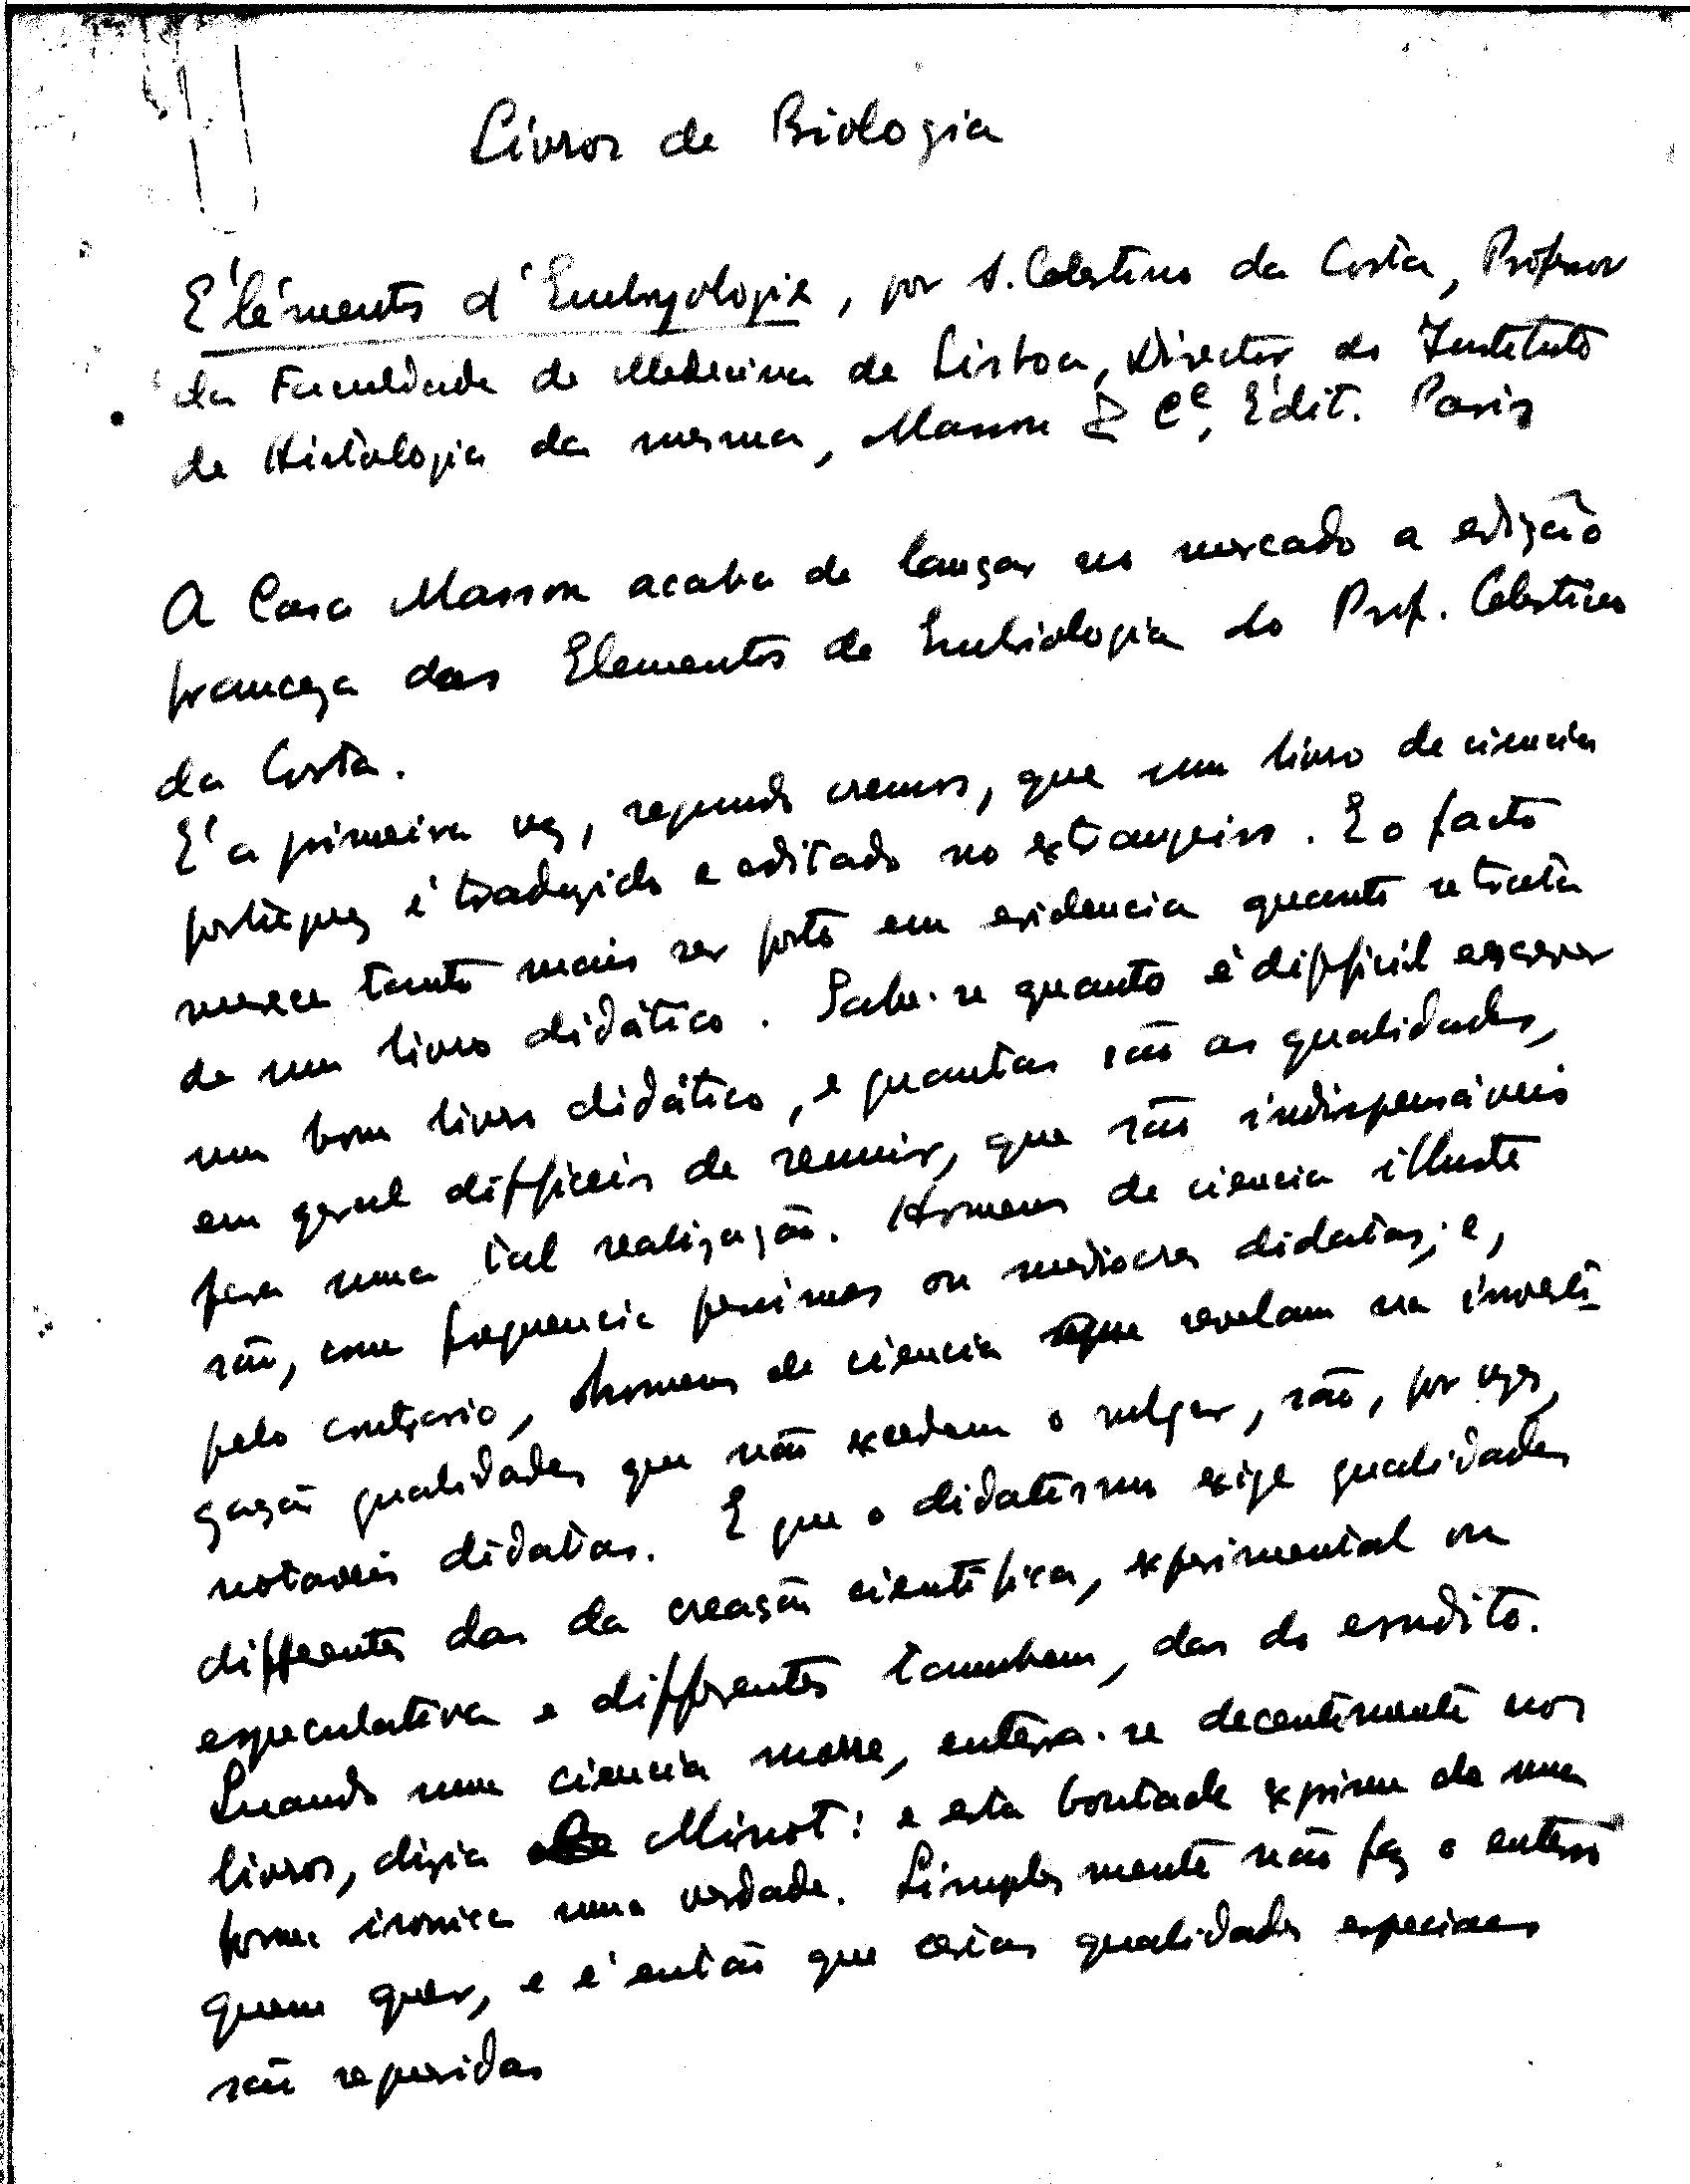 Livros de Biologia
Éléments d'Embryologie, por A. Celestino da Costa, Professor
da Faculdade de Medicina de Lisboa, Director do Instituto
de Histologia da mesma, Masson & Cᵉ, Édit. Paris
A Casa Masson acaba de lançar no mercado a edição
franceza dos Elementos de Embriologia do Prof. Celestino
da Costa.
E' a primeira vez, segundo cremos, que um livro de ciencia
portuguez é traduzido e editado no extrangeiro. E o facto
merece tanto mais ser posto em evidencia quanto se trata
de um livro didático. Sabe-se quanto é difficil escrever
um bom livro didático, e quantas são as qualidades,
em geral difficeis de reunir, que são indispensáveis
para uma tal realização. Homens de ciencia illustres
são, com frequencia pessimos ou mediocres didatas; e,
pelo contrario, homens de ciencia que revelam na investi
gação qualidades que não excedem o vulgar, são, por vezes,
notaveis didatas. E que o didatismo exige qualidades
differentes das da creação cientifica, experimental ou
especulativa e differentes tambem, das do erudito.
Quando uma ciencia morre, enterra-se decentemente nos
livros, dizia Minot: e esta boutade exprime de uma
forma ironica uma verdade. Simplesmente não faz o enterro
quem quer, e é então que certas qualidades especiaes
são requeridas